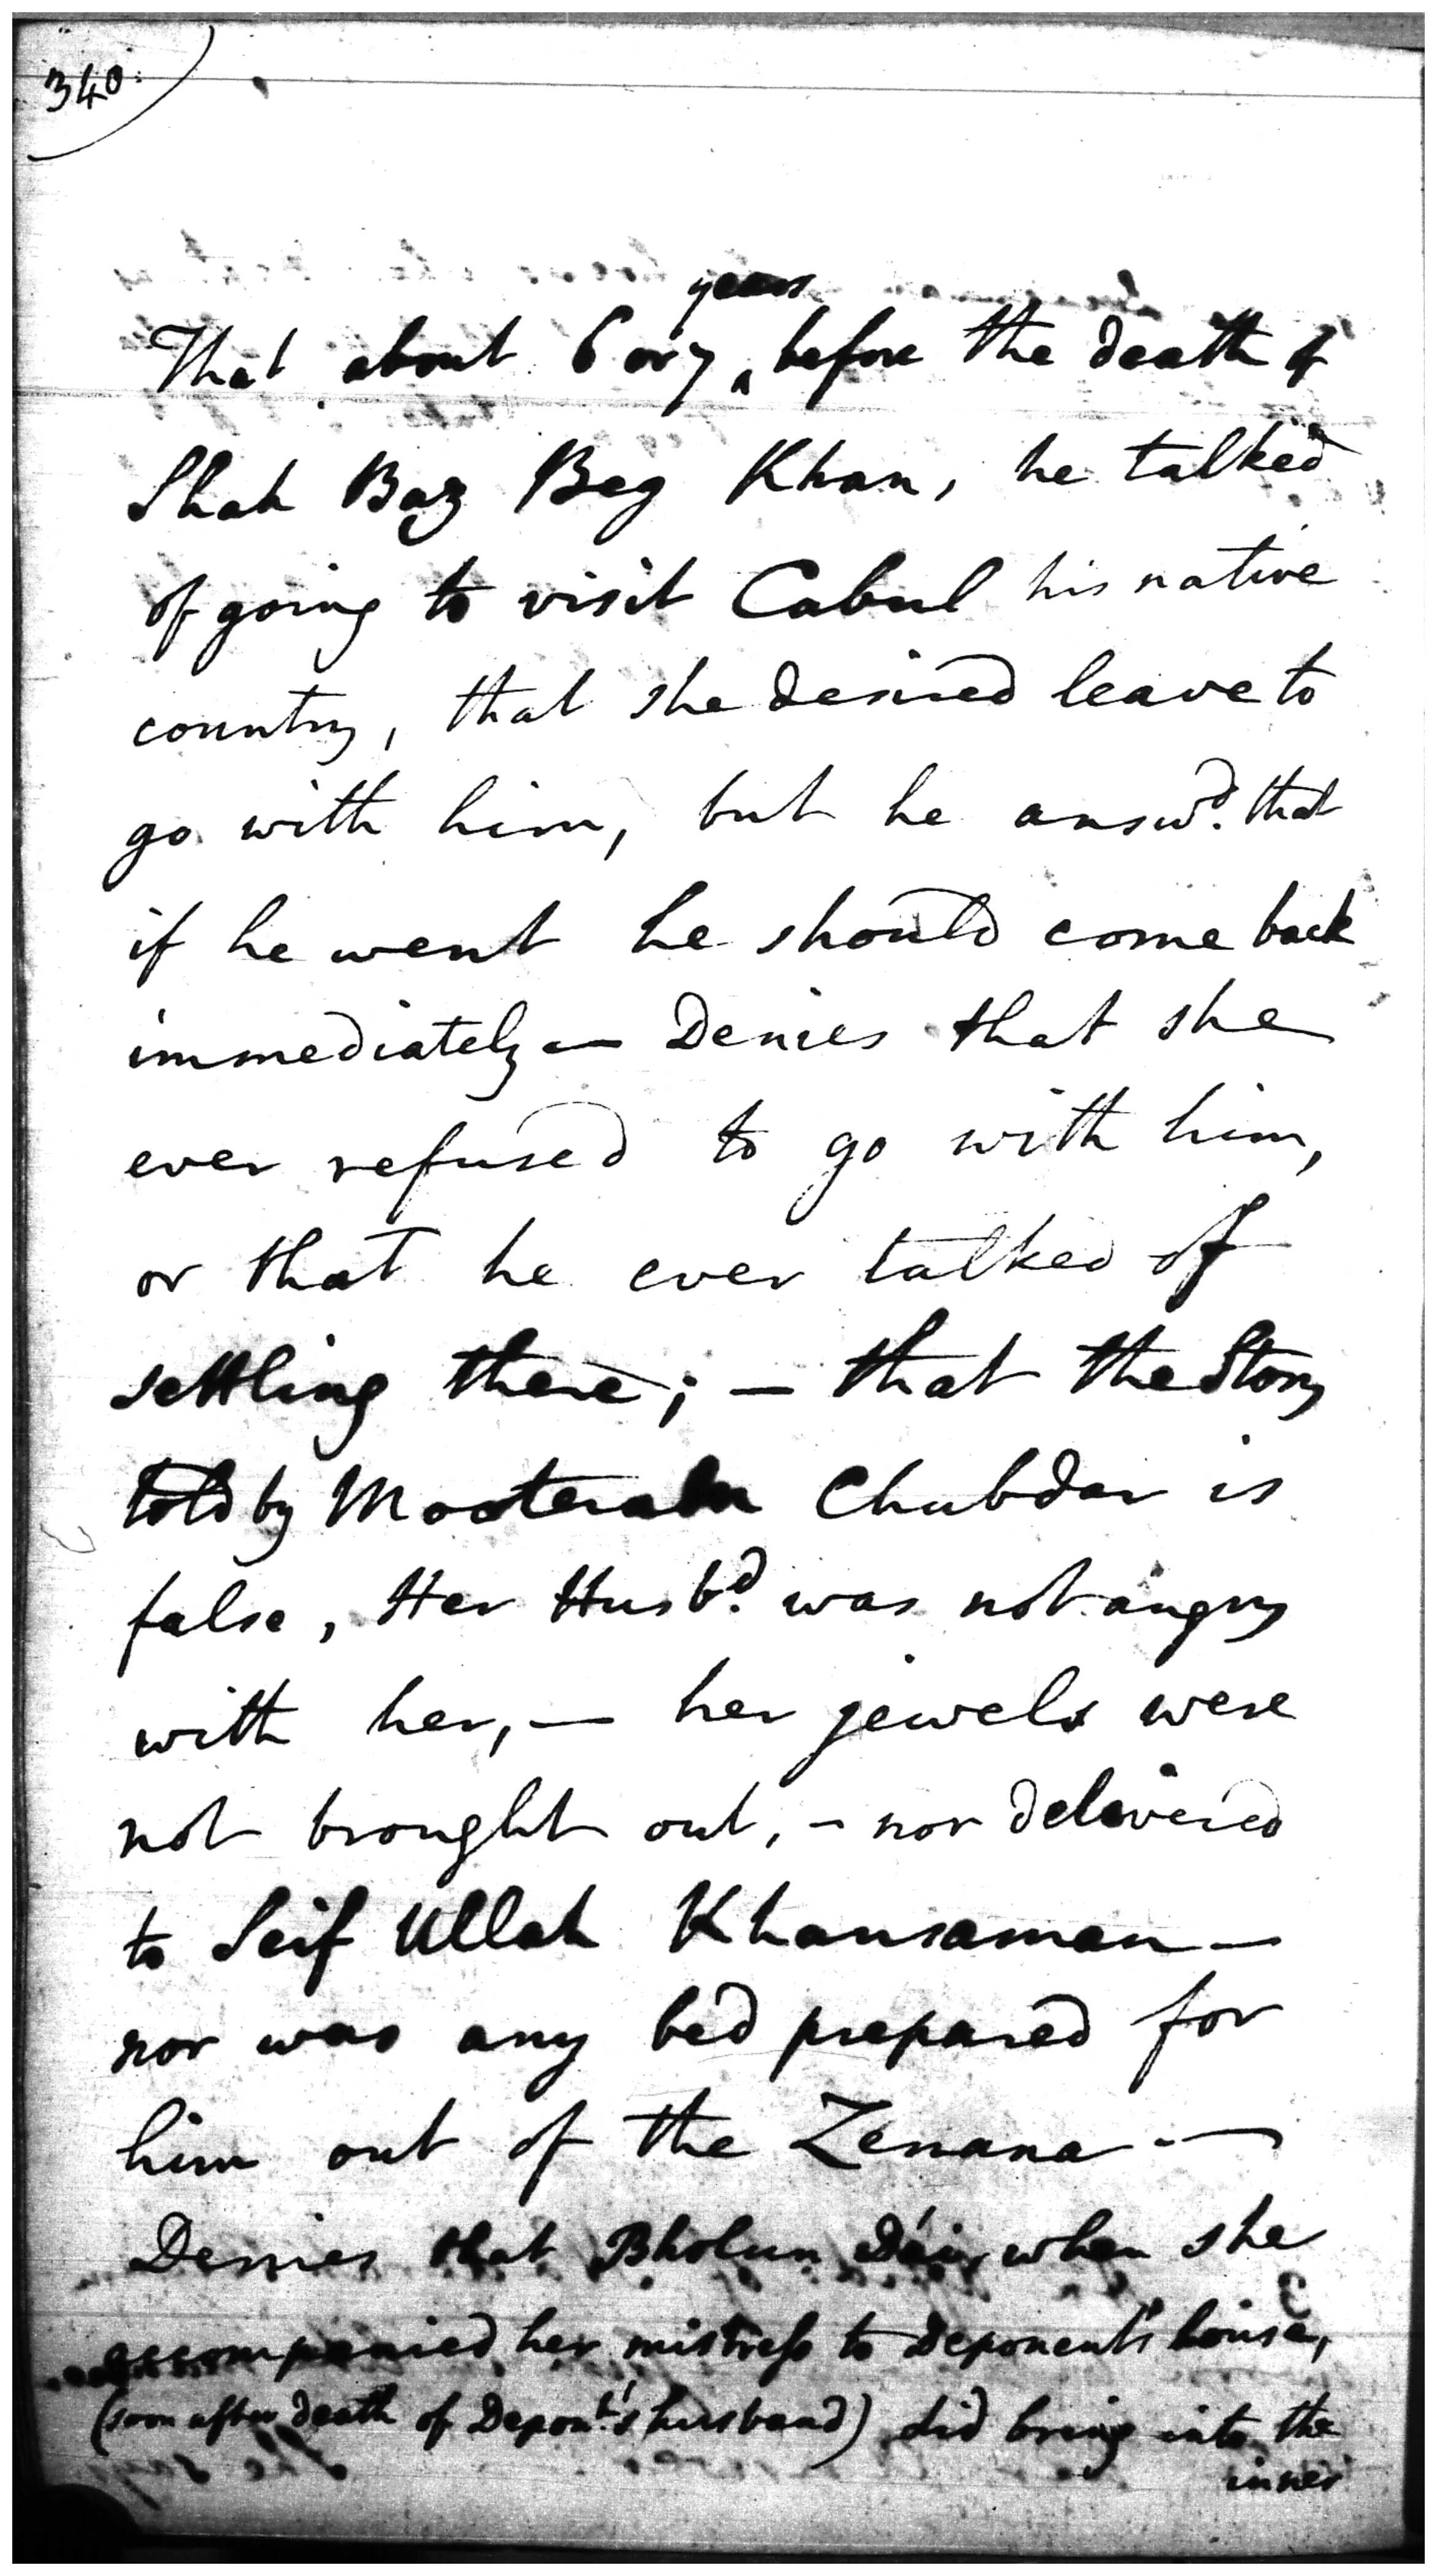 340.
years
That about 6 or 7 ‸ before the death of
Shah Baz Beg Khan, he talked
of going to visit Cabul his native
country, that she desired leave to
go with him, but he answd. that
if he went he should come back
immediately — Denies that she
ever refused to go with him,
or that he ever talked of
settling there; — that the Story
told by Mooteram Chubdar is
false, Her Husbd. was not angry
with her, — her jewels were
not brought out, – nor delivered
to Seif Ullah Khansaman —
nor was any bed prepared for
him out of the Zenana —
Denies that Bholun when she
accompanied her mistress to Deponent's house,
(soon after death of Depont.'s husband) did bring into the
inner